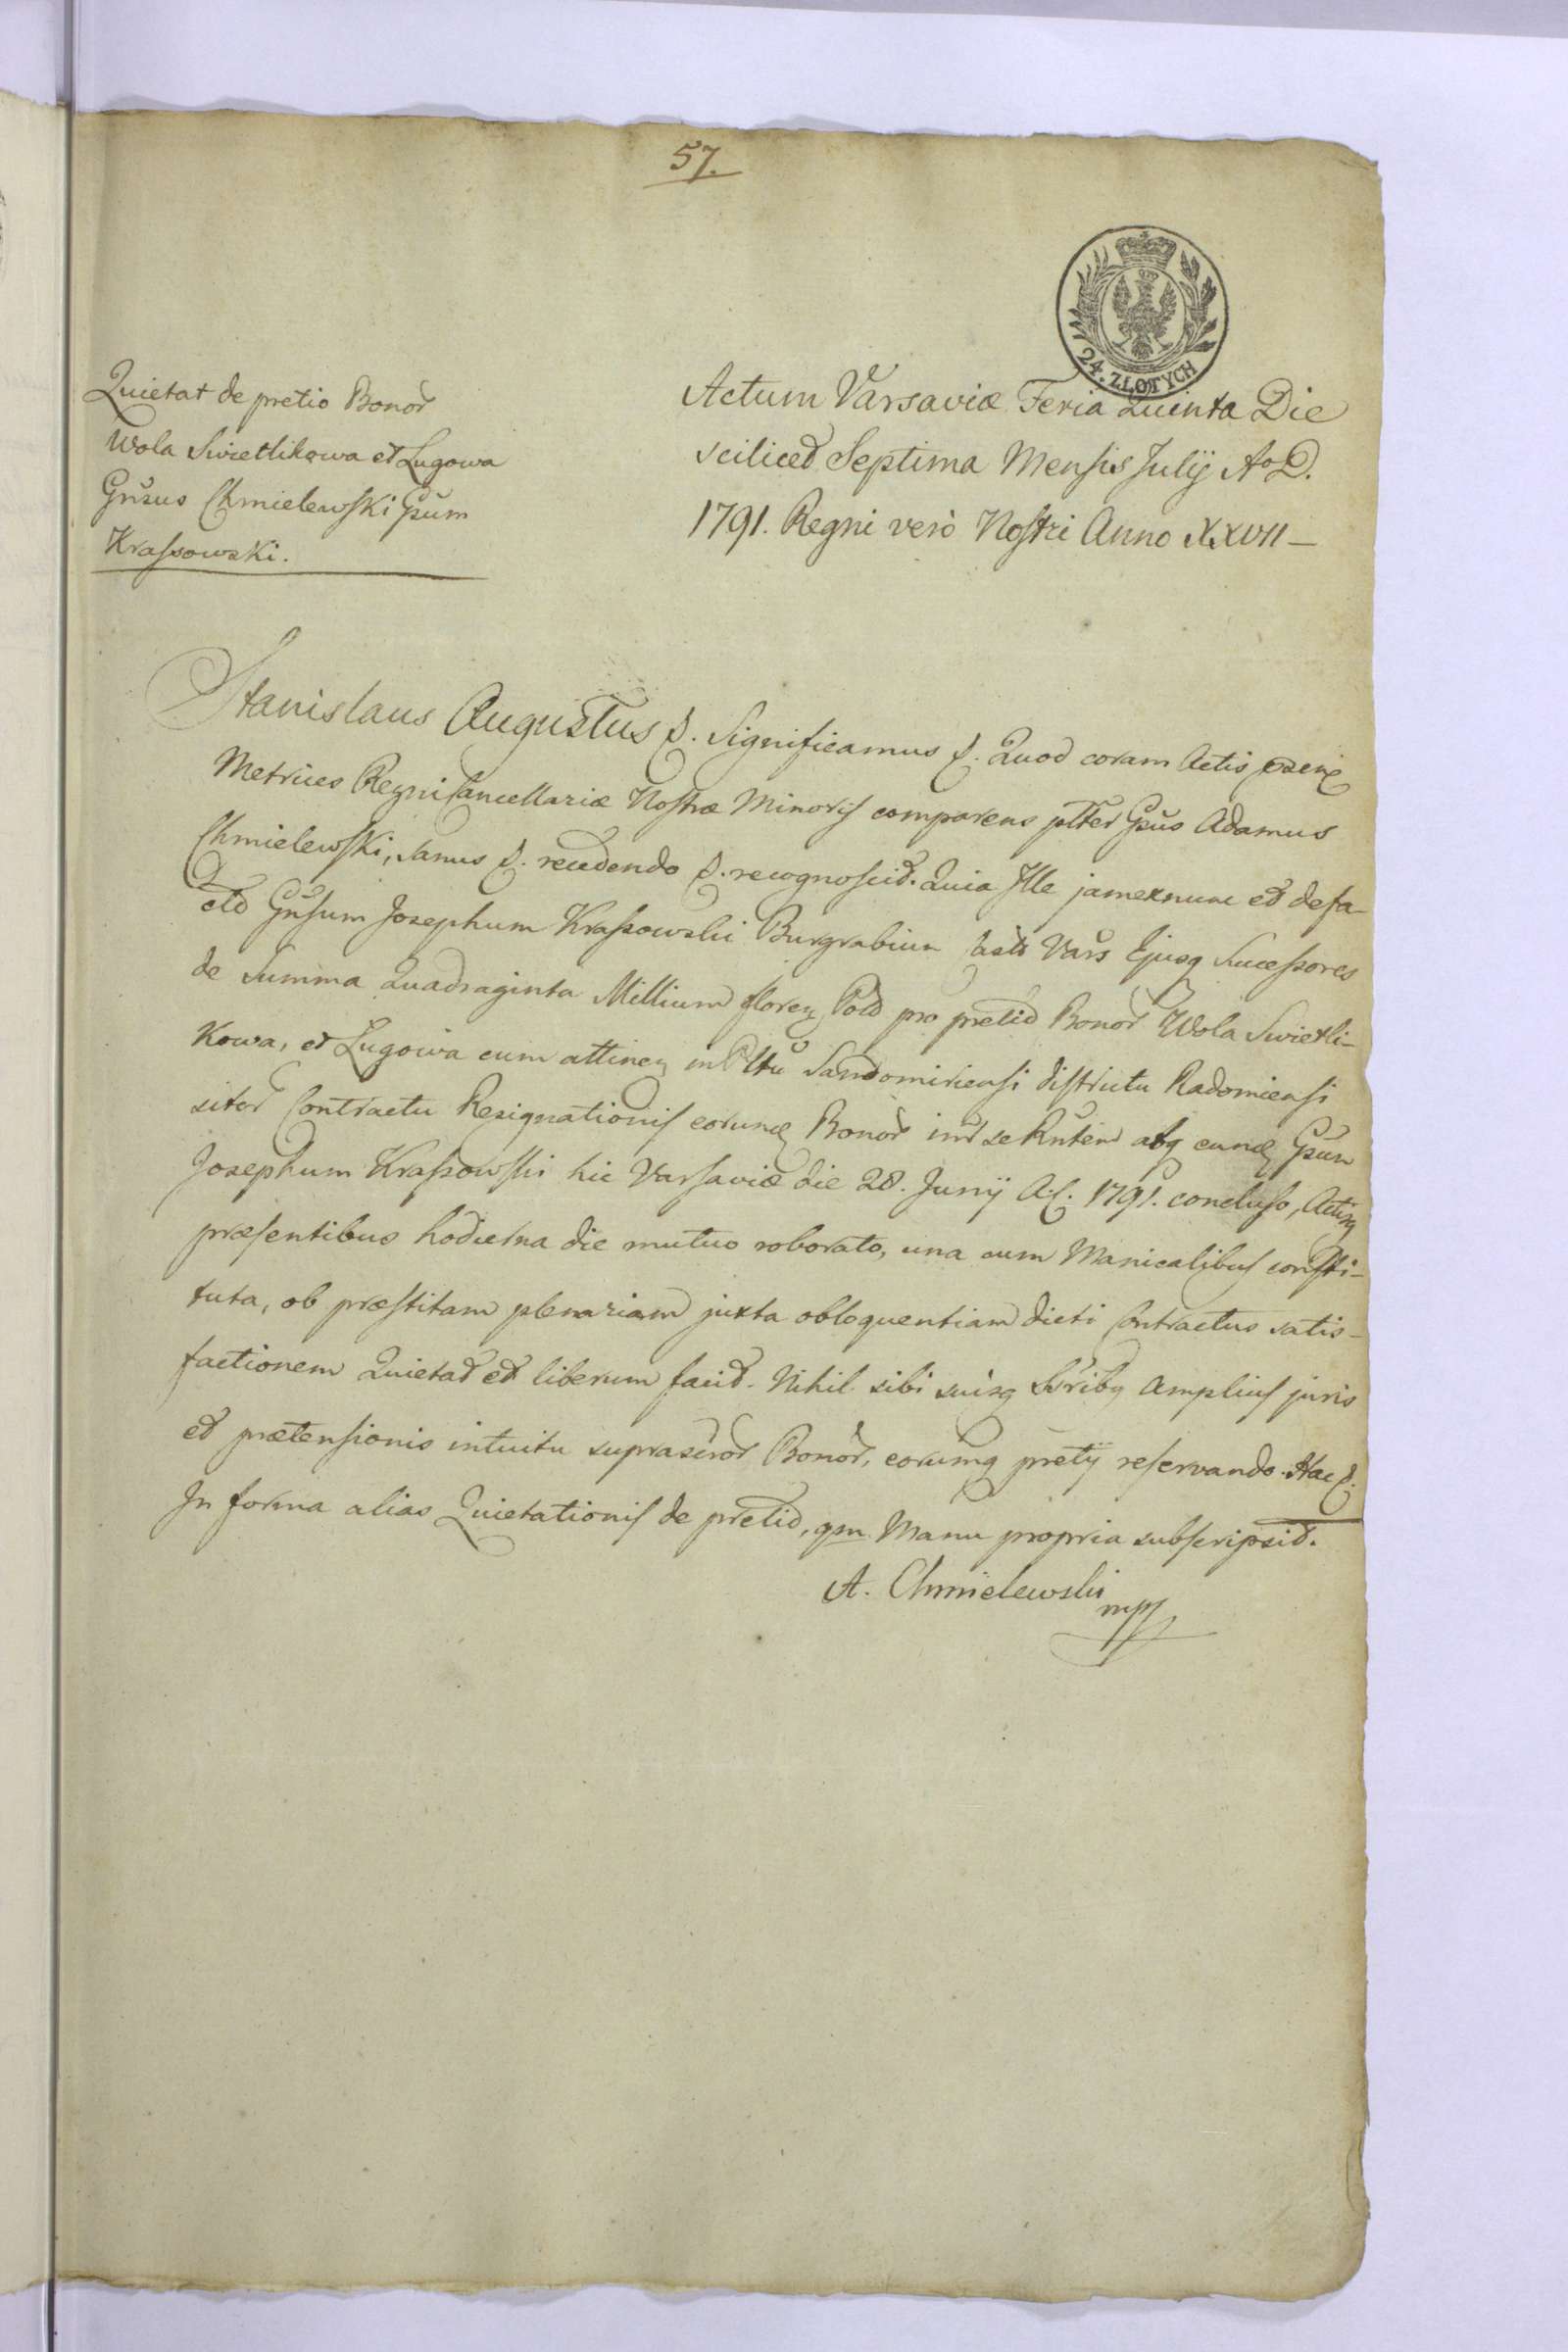 57.
24. ZŁOTYCH
Quietat de pretio Bonor̃
Wola Swietlikowa et Lugowa
Gn̆sus Chmielewski Gsum
Krassowski.
Actum Varsaviæ Feria Quinta Die
scilicet Septima Mensis Julÿ Ao D.
1791. Regni verò Nostri Anno XXVII—
Stanislaus Augustus &. Significamus &. Quod coram Actis
Metrices Regni Cancellariæ Nostræ Minoris comparens pltter Gsus Adamus
Chmielewski, sanus &. recedendo &. recognoscit. Quia Ille jamexnunc et defa-
cto Gnsum Josephum Krassowski Burgrabium Vars Ejusq Successores
de Summa Quadraginta Millium floren Pold pro pretio Bonor Wola Swietli-
kowa, et Lugowa cum attinen in Pltu Sandomiriensi districtu Radomiensi
sitor Contractu Resignationis eorund Bonor int se Rntem atq eund Gsum
Josephum Krassowski hic Varsaviæ die 28. Junÿ A.C. 1791. concluso, Actisq
præsentibus hodierna die mutuo roborato, una cum Manicalibus consti-
tuta, ob præstitam plenariam juxta obloquentiam dicti Contractus satis-
factionem Quietat et liberum facit. Nihil sibi suisq Ssribq amplius juris
et prætensionis intuitu suprascror Bonor, eorumq pretÿ reservando. Hac &.
In forma alias Quietationis de pretio, qm Manu propria subscripsit.
A. Chmielewski
mp